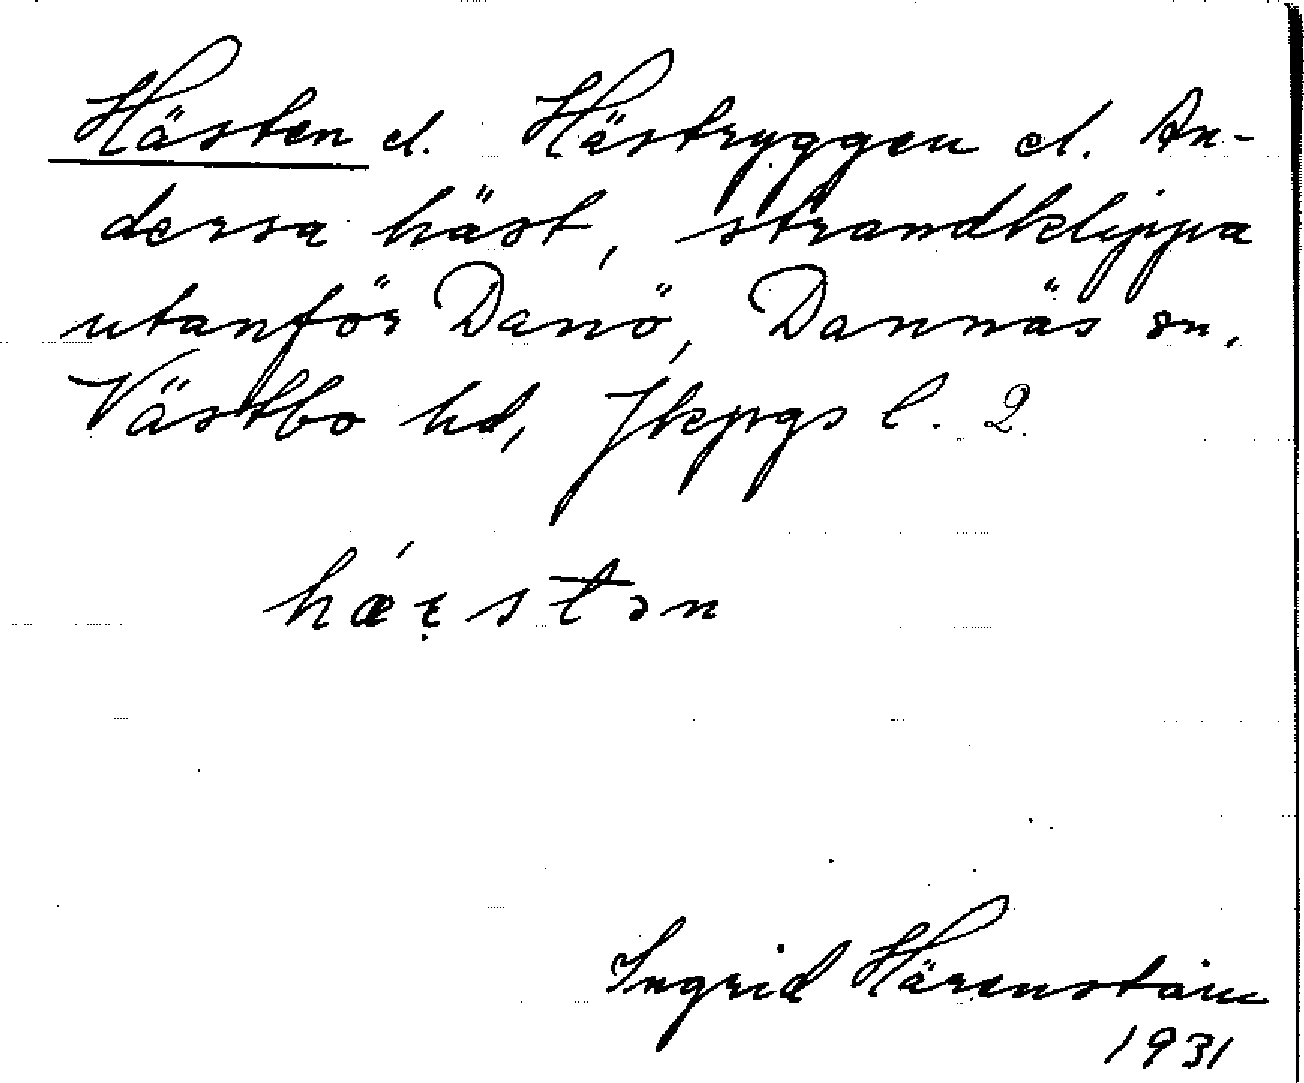 Hästen el. Hästryggen el. An-
dersa häst, strandklippa
utanför Danö, Dannäs sn,
Västbo hd, Jkpgs l. 2
hǽı̣stən
Ingrid Härenstam
1931